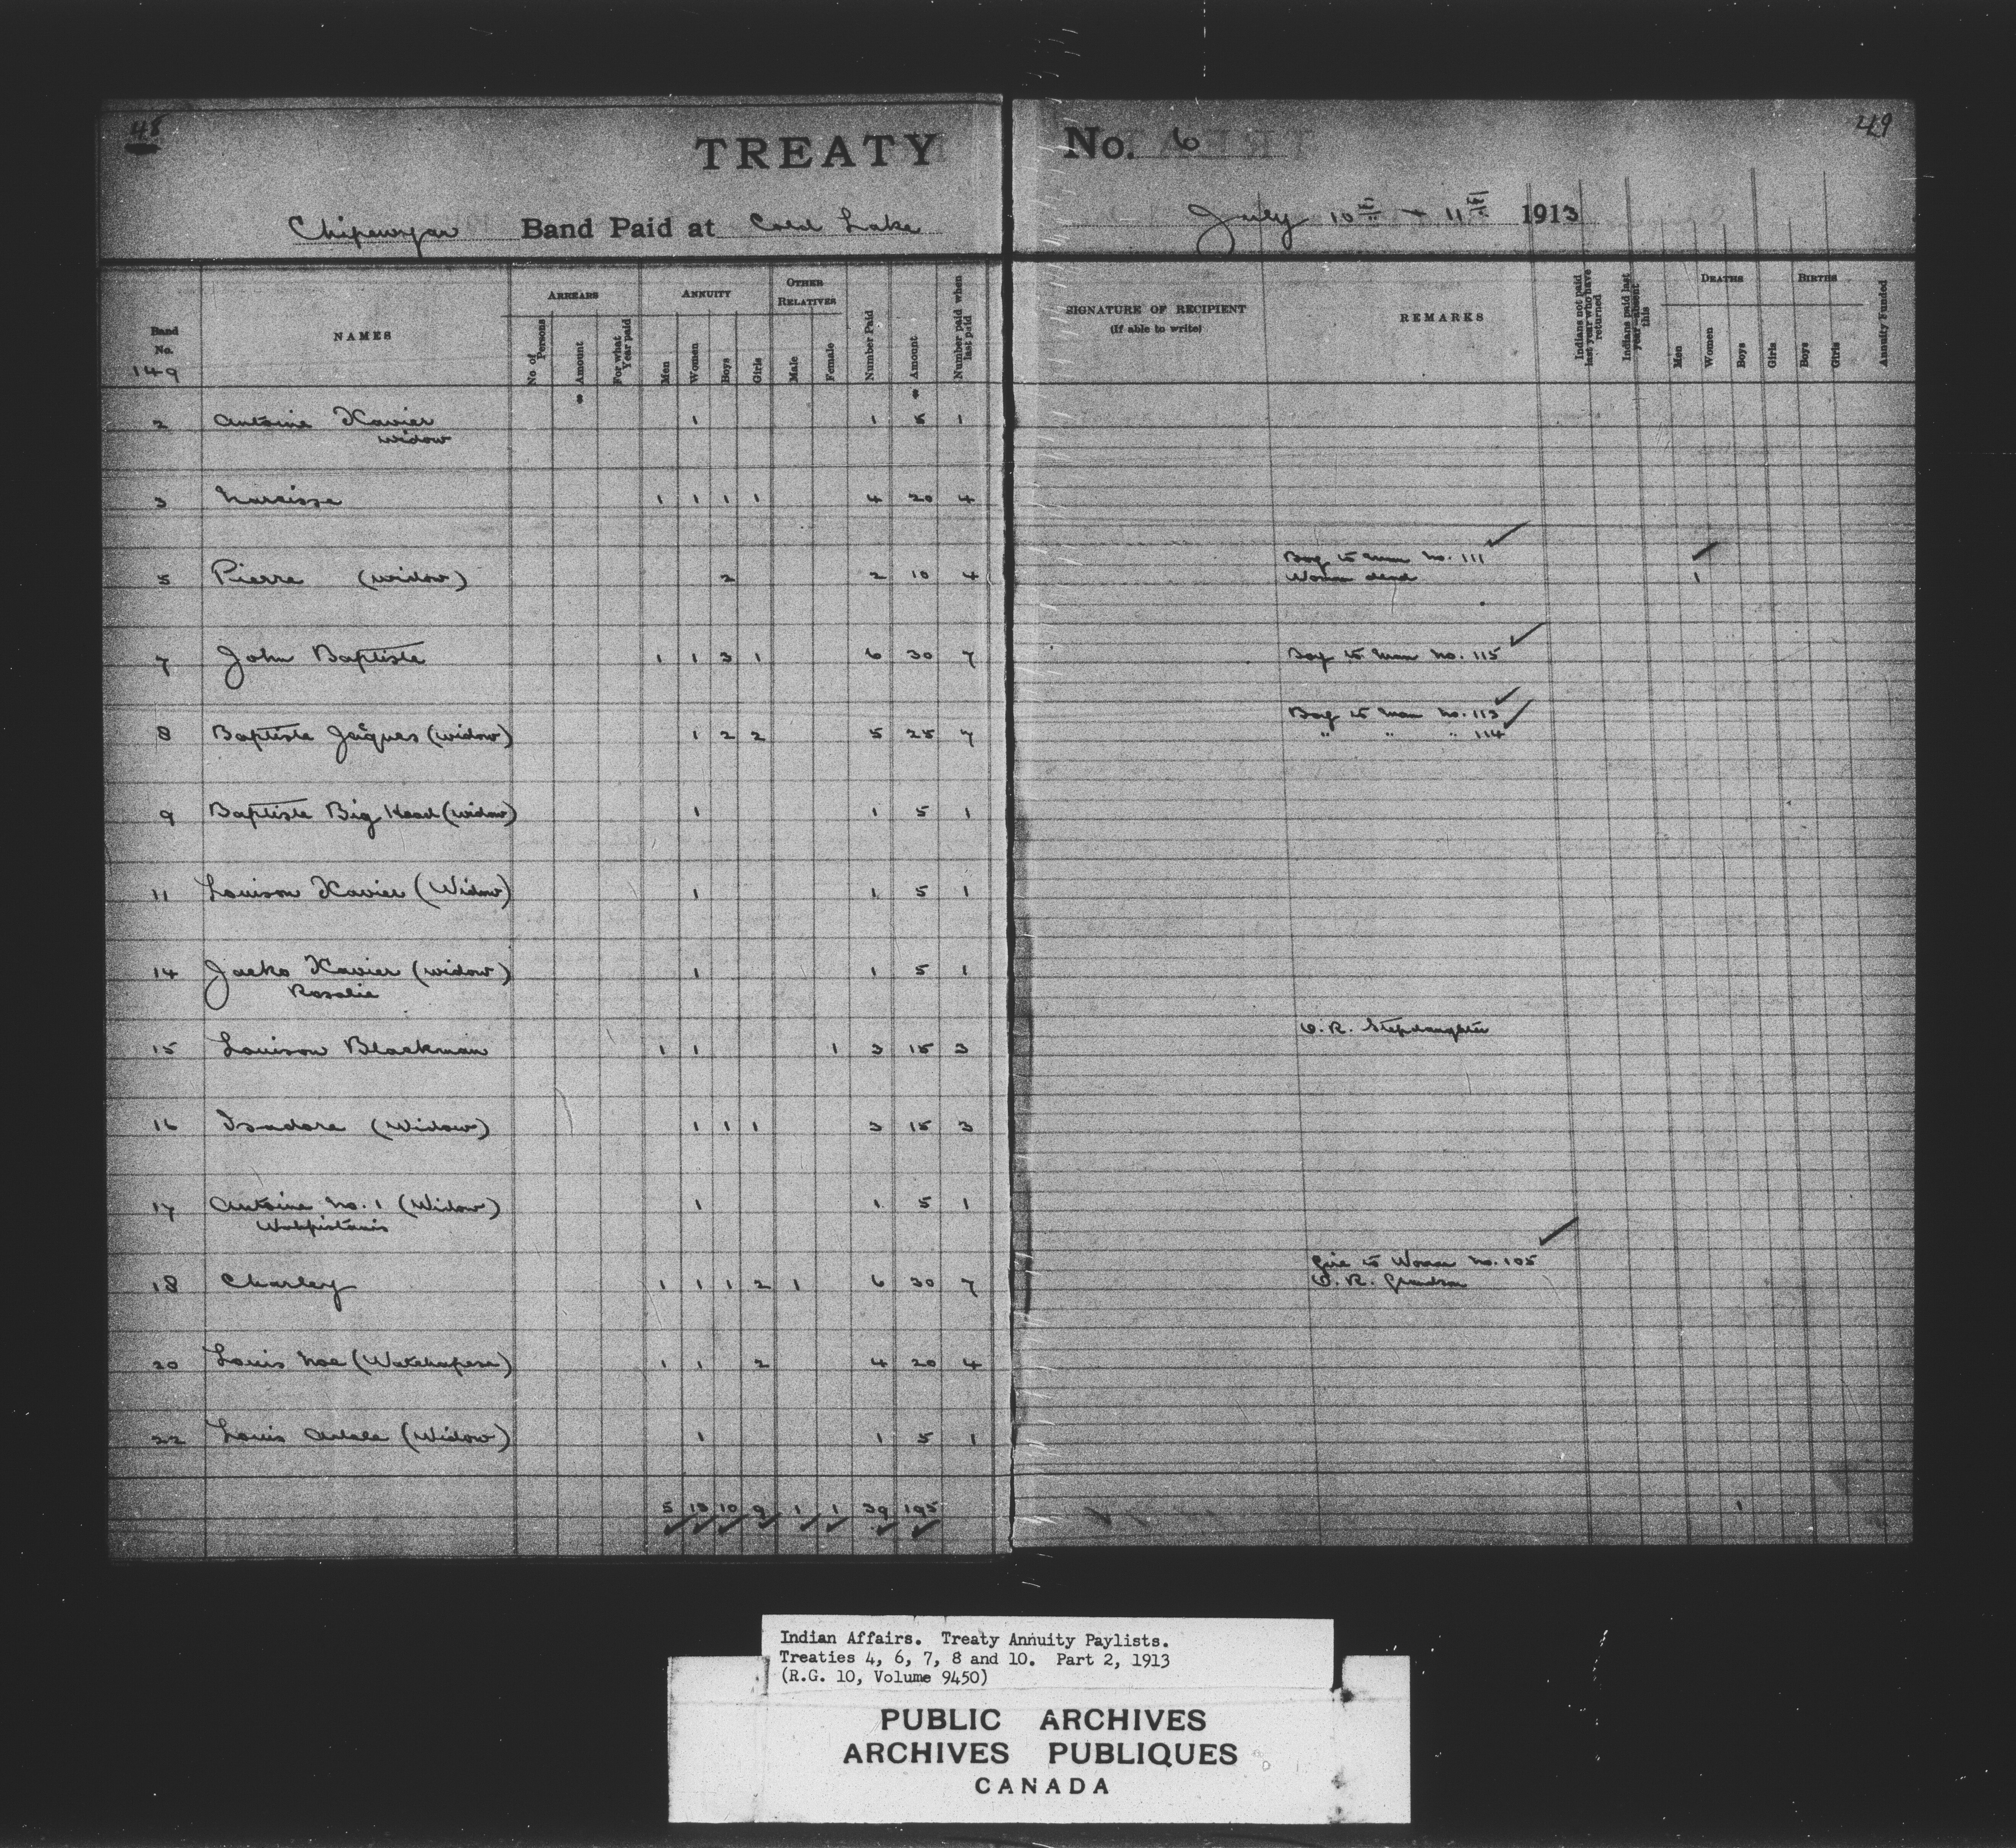 48
TREATY
No. 6
49
Chipewyan Band Paid at Cold Lake
July 10th + 11th 1913
Band No. 149
NAMES
ARREARS
No of Persons
Amount
For what Year paid
ANNUITY
Men
Women
Boys
Girls
OTHER RELATIVES
Male
Female
Number Paid
Amount
Number paid when last paid
SIGNATURE OF RECIPIENT
(If able to write)
REMARKS
Indians not paid last year who have returned
Indians paid last year—absent this
DEATHS
Men
Women
Boys
Girls
BIRTHS
Boys
Girls
Annuity Funded
$ $
2 Antoine Xavier 1 1 5 1
widow
3 Narcisse 1 1 1 1 4 20 4
Boy to man No. 111
5 Pierre (widow) 2 2 10 4 Woman dead 1
7 John Baptiste 1 1 3 1 6 30 7 Boy to man No. 115
Boy to man No. 113
8 Baptiste Jaques (widow) 1 2 2 5 25 7 " " " 114
9 Baptiste Big Head (widow) 1 1 5 1
11 Louison Xavier (Widow) 1 1 5 1
14 Jacko Xavier (widow) 1 1 5 1
Rosalie
O.R. Stepdaughter
15 Louison Blackman 1 1 1 3 15 3
16 Isadore (Widow) 1 1 1 3 15 3
17 Antoine No. 1 (Widow) 1 1 5 1
Wahpistanis
Girl to Woman No. 105
18 Charley 1 1 1 2 1 6 30 7 O.R. Grandson
20 Louis Noe (Watchapese) 1 1 2 4 20 4
22 Louis (Widow) 1 1 5 1
5 13 10 9 1 1 39 195 1
Indian Affairs. Treaty Annuity Paylists.
Treaties 4, 6, 7, 8 and 10. Part 2, 1913
(R.G. 10, Volume 9450)
PUBLIC ARCHIVES
ARCHIVES PUBLIQUES
CANADA